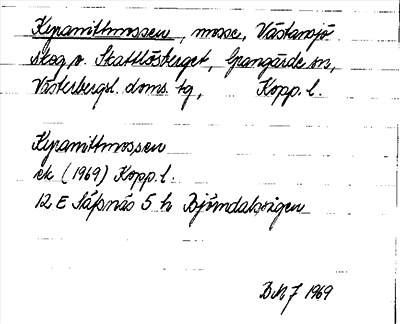 Kyramittmossen, mosse, Västansjö
skog, v. Skattlösberget, Grangärde sn,
Västerbergsl. doms. tg, Kopp. l.
Kyramittmossen
ek (1969) Kopp. l.
12 E Säfsnäs 5 h Björndalsvigen
BM 7 1969